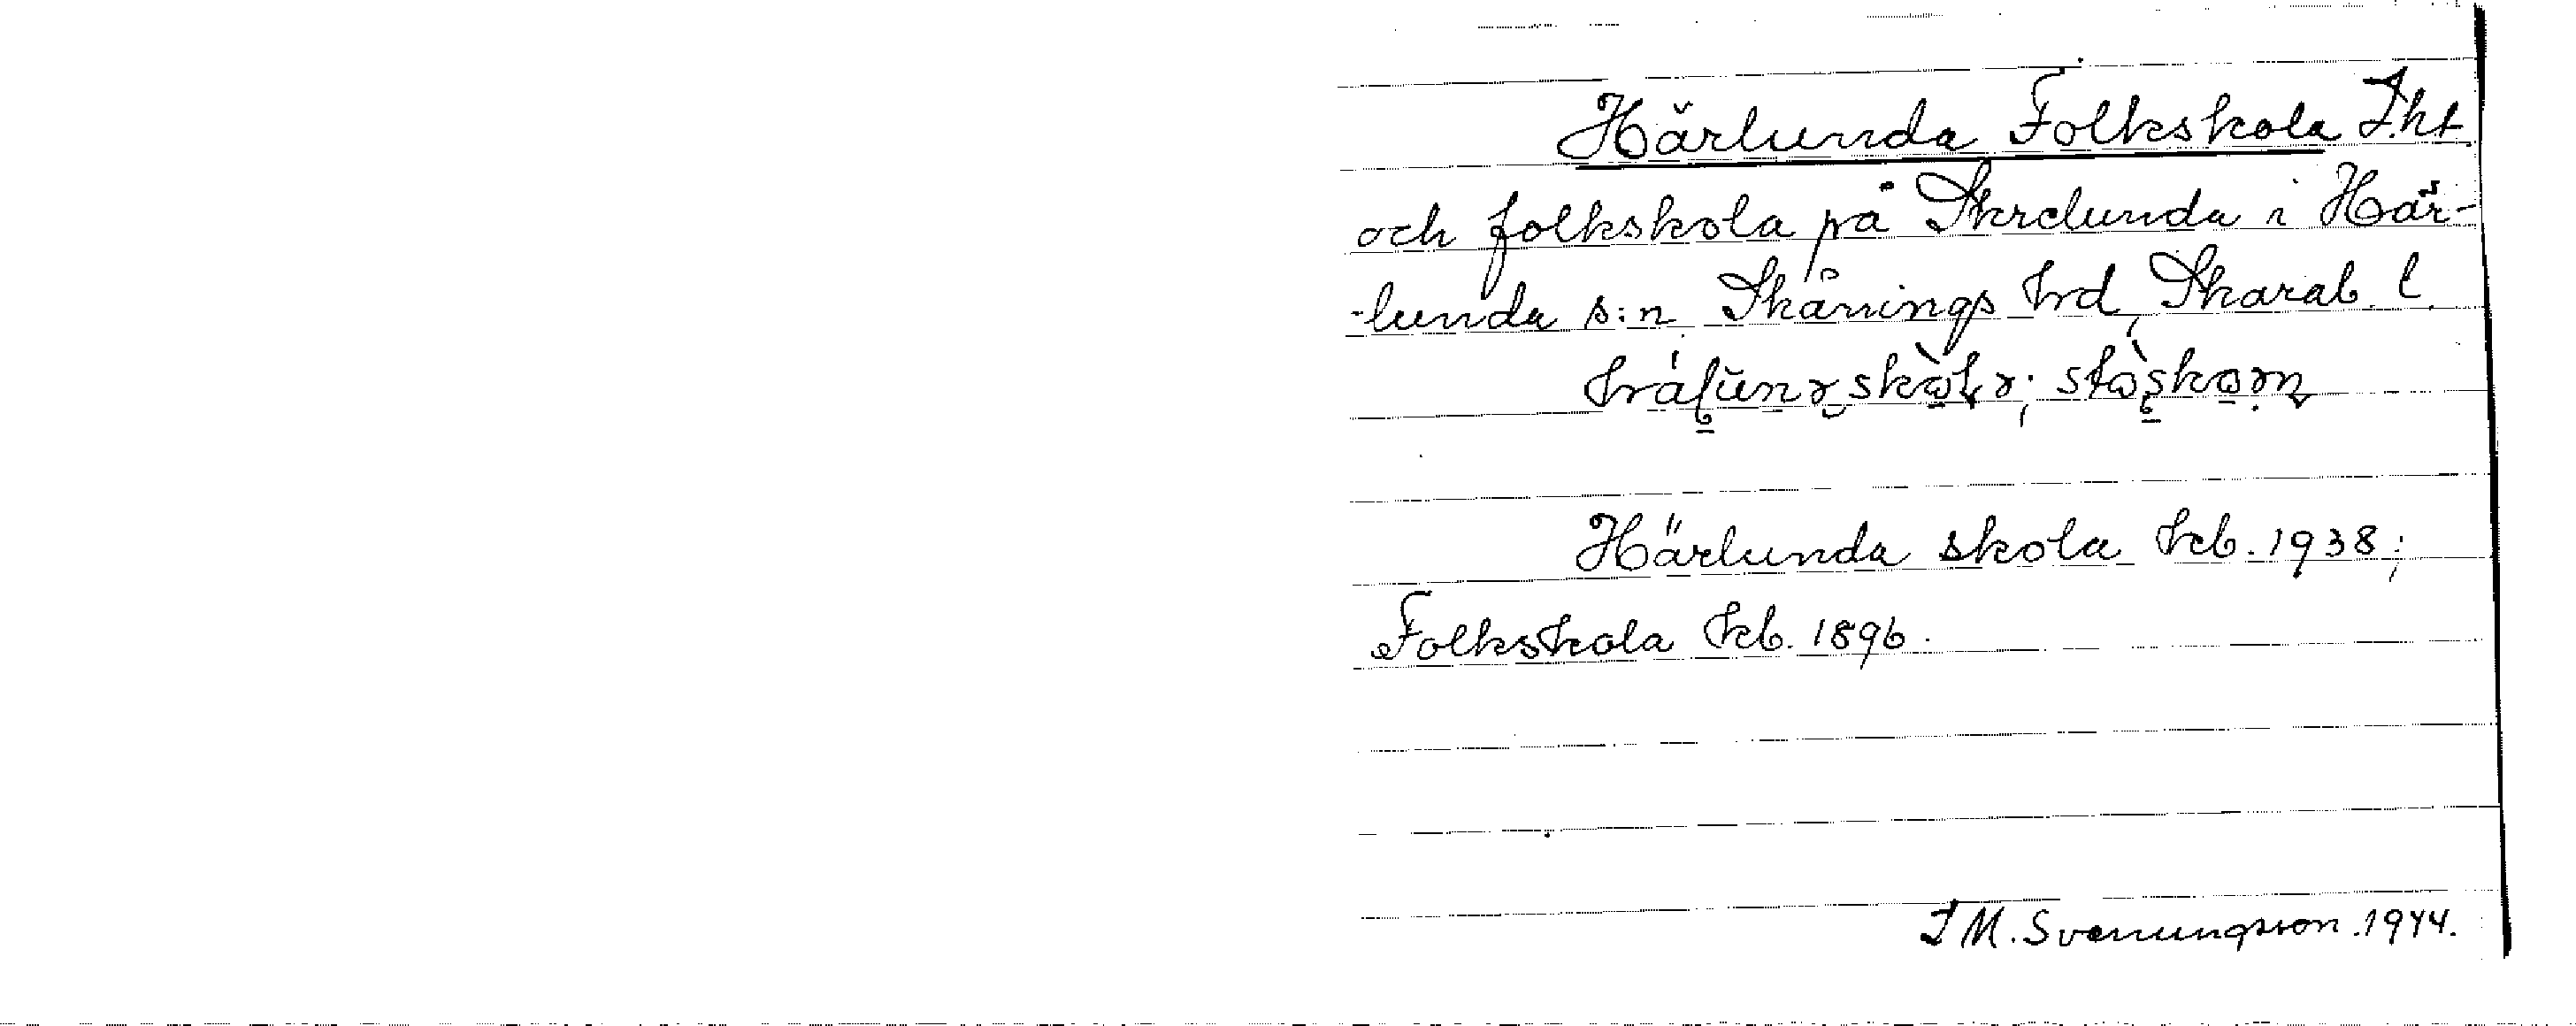 Härlunda Folkskola Lht
och folkskola på Skrelunda i Här-
-lunda s:n Skånings hd, Skarab. l.
Härlunda skola kb. 1938;
Folkskola kb. 1896.
I M. Svenungsson. 1944.